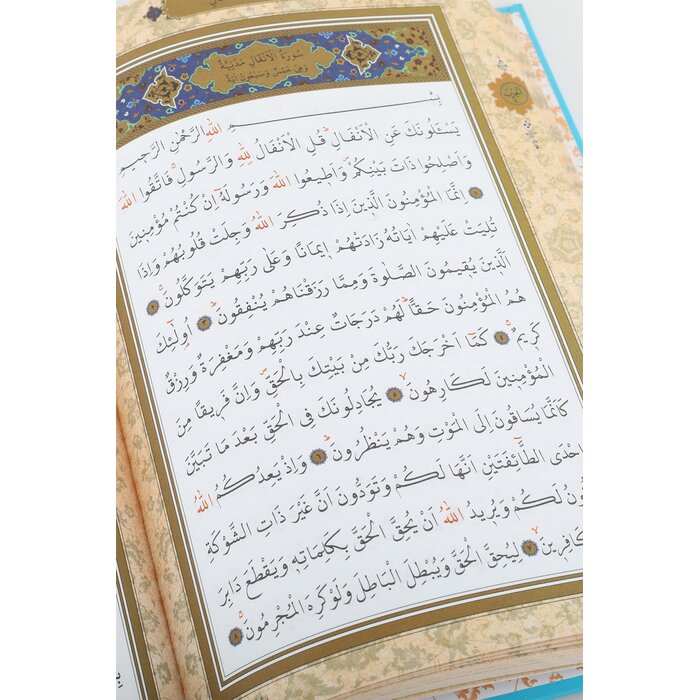 سُورَةُ الْاَنْفَالِ مَدَنِيَّةٌ
وَهِيَ خَمْسٌ وَسَبْعُونَ اٰيَةً
بِسْــــمِ اللّٰهِ الرَّحْمٰنِ الرَّحٖيمِ
يَسْـَٔلُونَكَ عَنِ الْاَنْفَالِ قُلِ الْاَنْفَالُ لِلّٰهِ وَالرَّسُولِ فَاتَّقُوا اللّٰهَ
وَاَصْلِحُوا ذَاتَ بَيْنِكُمْ وَاَطٖيعُوا اللّٰهَ وَرَسُولَهُٓ اِنْ كُنْتُمْ مُؤْمِنٖينَ
١ اِنَّمَا الْمُؤْمِنُونَ الَّذٖينَ اِذَا ذُكِرَ اللّٰهُ وَجِلَتْ قُلُوبُهُمْ وَاِذَا
تُلِيَتْ عَلَيْهِمْ اٰيَاتُهُ زَادَتْهُمْ اٖيمَانًا وَعَلٰى رَبِّهِمْ يَتَوَكَّلُونَ ٢
اَلَّذٖينَ يُقٖيمُونَ الصَّلٰوةَ وَمِمَّا رَزَقْنَاهُمْ يُنْفِقُونَ ٣ اُولٰٓئِكَ
هُمُ الْمُؤْمِنُونَ حَقًّا لَهُمْ دَرَجَاتٌ عِنْدَ رَبِّهِمْ وَمَغْفِرَةٌ وَرِزْقٌ
كَرٖيمٌ ٤ كَمَٓا اَخْرَجَكَ رَبُّكَ مِنْ بَيْتِكَ بِالْحَقِّ وَاِنَّ فَرٖيقًا مِنَ
الْمُؤْمِنٖينَ لَكَارِهُونَ ٥ يُجَادِلُونَكَ فِى الْحَقِّ بَعْدَ مَا تَبَيَّنَ
كَاَنَّمَا يُسَاقُونَ اِلَى الْمَوْتِ وَهُمْ يَنْظُرُونَ ٦ وَاِذْ يَعِدُكُمُ اللّٰهُ
اِحْدَى الطَّٓائِفَتَيْنِ اَنَّهَا لَكُمْ وَتَوَدُّونَ اَنَّ غَيْرَ ذَاتِ الشَّوْكَةِ
تَكُونُ لَكُمْ وَيُرٖيدُ اللّٰهُ اَنْ يُحِقَّ الْحَقَّ بِكَلِمَاتِهٖ وَيَقْطَعَ دَابِرَ
الْكَافِرٖينَ ٧ لِيُحِقَّ الْحَقَّ وَيُبْطِلَ الْبَاطِلَ وَلَوْ كَرِهَ الْمُجْرِمُونَ ٨